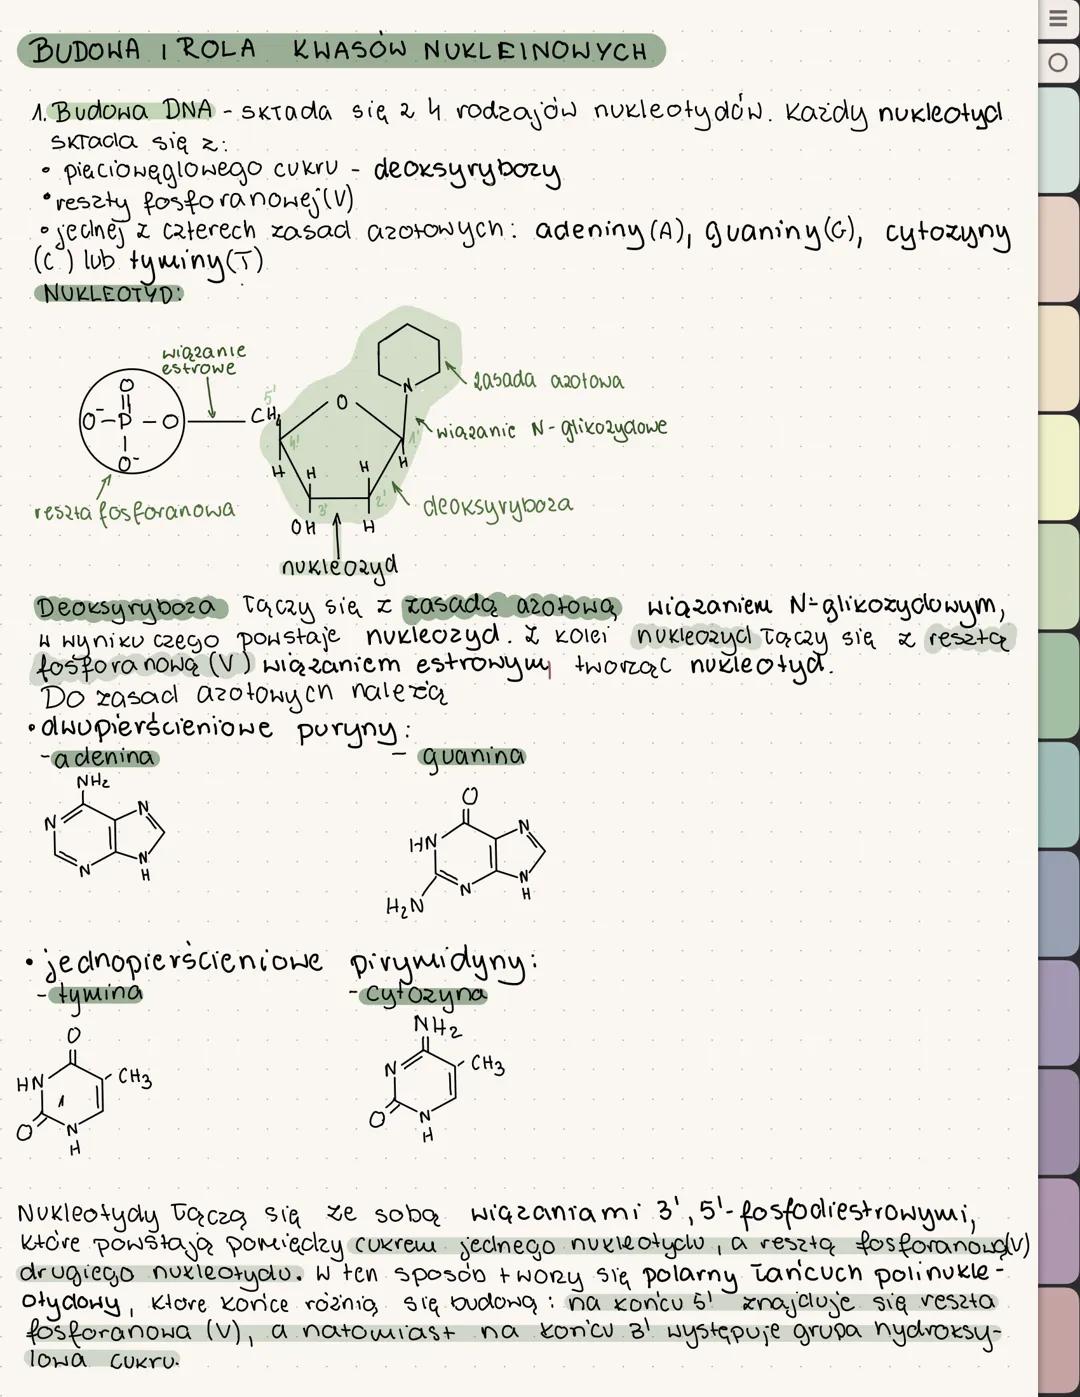 BUDOWA I ROLA KWASÓW NUKLEINOWYCH
1. Budowa DNA - składa się z 4 rodzajów nukleotydów. Każdy nukleotyd
składa się z:
• pięciowęglowego cukru - deoksyrybozy
• reszty fosforanowej (V)
• jednej z czterech zasad azotowych: adeniny (A), guaniny (G), cytozyny
(C) lub tyminy (T)
NUKLEOTYD:
wiązanie
estrowe
zasada azotowa
wiązanie N-glikozydowe
deoksyryboza
reszta fosforanowa
nukleozyd
O
O⁻-P-O
O⁻
5'
CH₂
O
N
4'
1'
H H H H
3'
2'
OH H
Deoksyryboza łączy się z zasadą azotową wiązaniem N-glikozydowym,
w wyniku czego powstaje nukleozyd. Z kolei nukleozyd łączy się z resztą
fosforanową (V) wiązaniem estrowym tworząc nukleotyd.
Do zasad azotowych należą
• dwupierścieniowe puryny:
- adenina - guanina
NH₂
N
N
N
N
H
O
HN
N
N
N
H
H₂N
• jednopierścieniowe pirymidyny:
- tymina - cytozyna
O
HN
CH3
1
O
N
H
NH2
N
CH3
O
N
H
Nukleotydy łączą się ze sobą wiązaniami 3', 5'-fosfodiestrowymi,
które powstają pomiędzy cukrem jednego nukleotydu, a resztą fosforanową(V)
drugiego nukleotydu. W ten sposób tworzy się polarny łańcuch polinukle-
otydowy, które końce różnią się budową: na końcu 5' znajduje się reszta
fosforanowa (V), a natomiast na końcu 3' występuje grupa hydroksy-
lowa cukru.